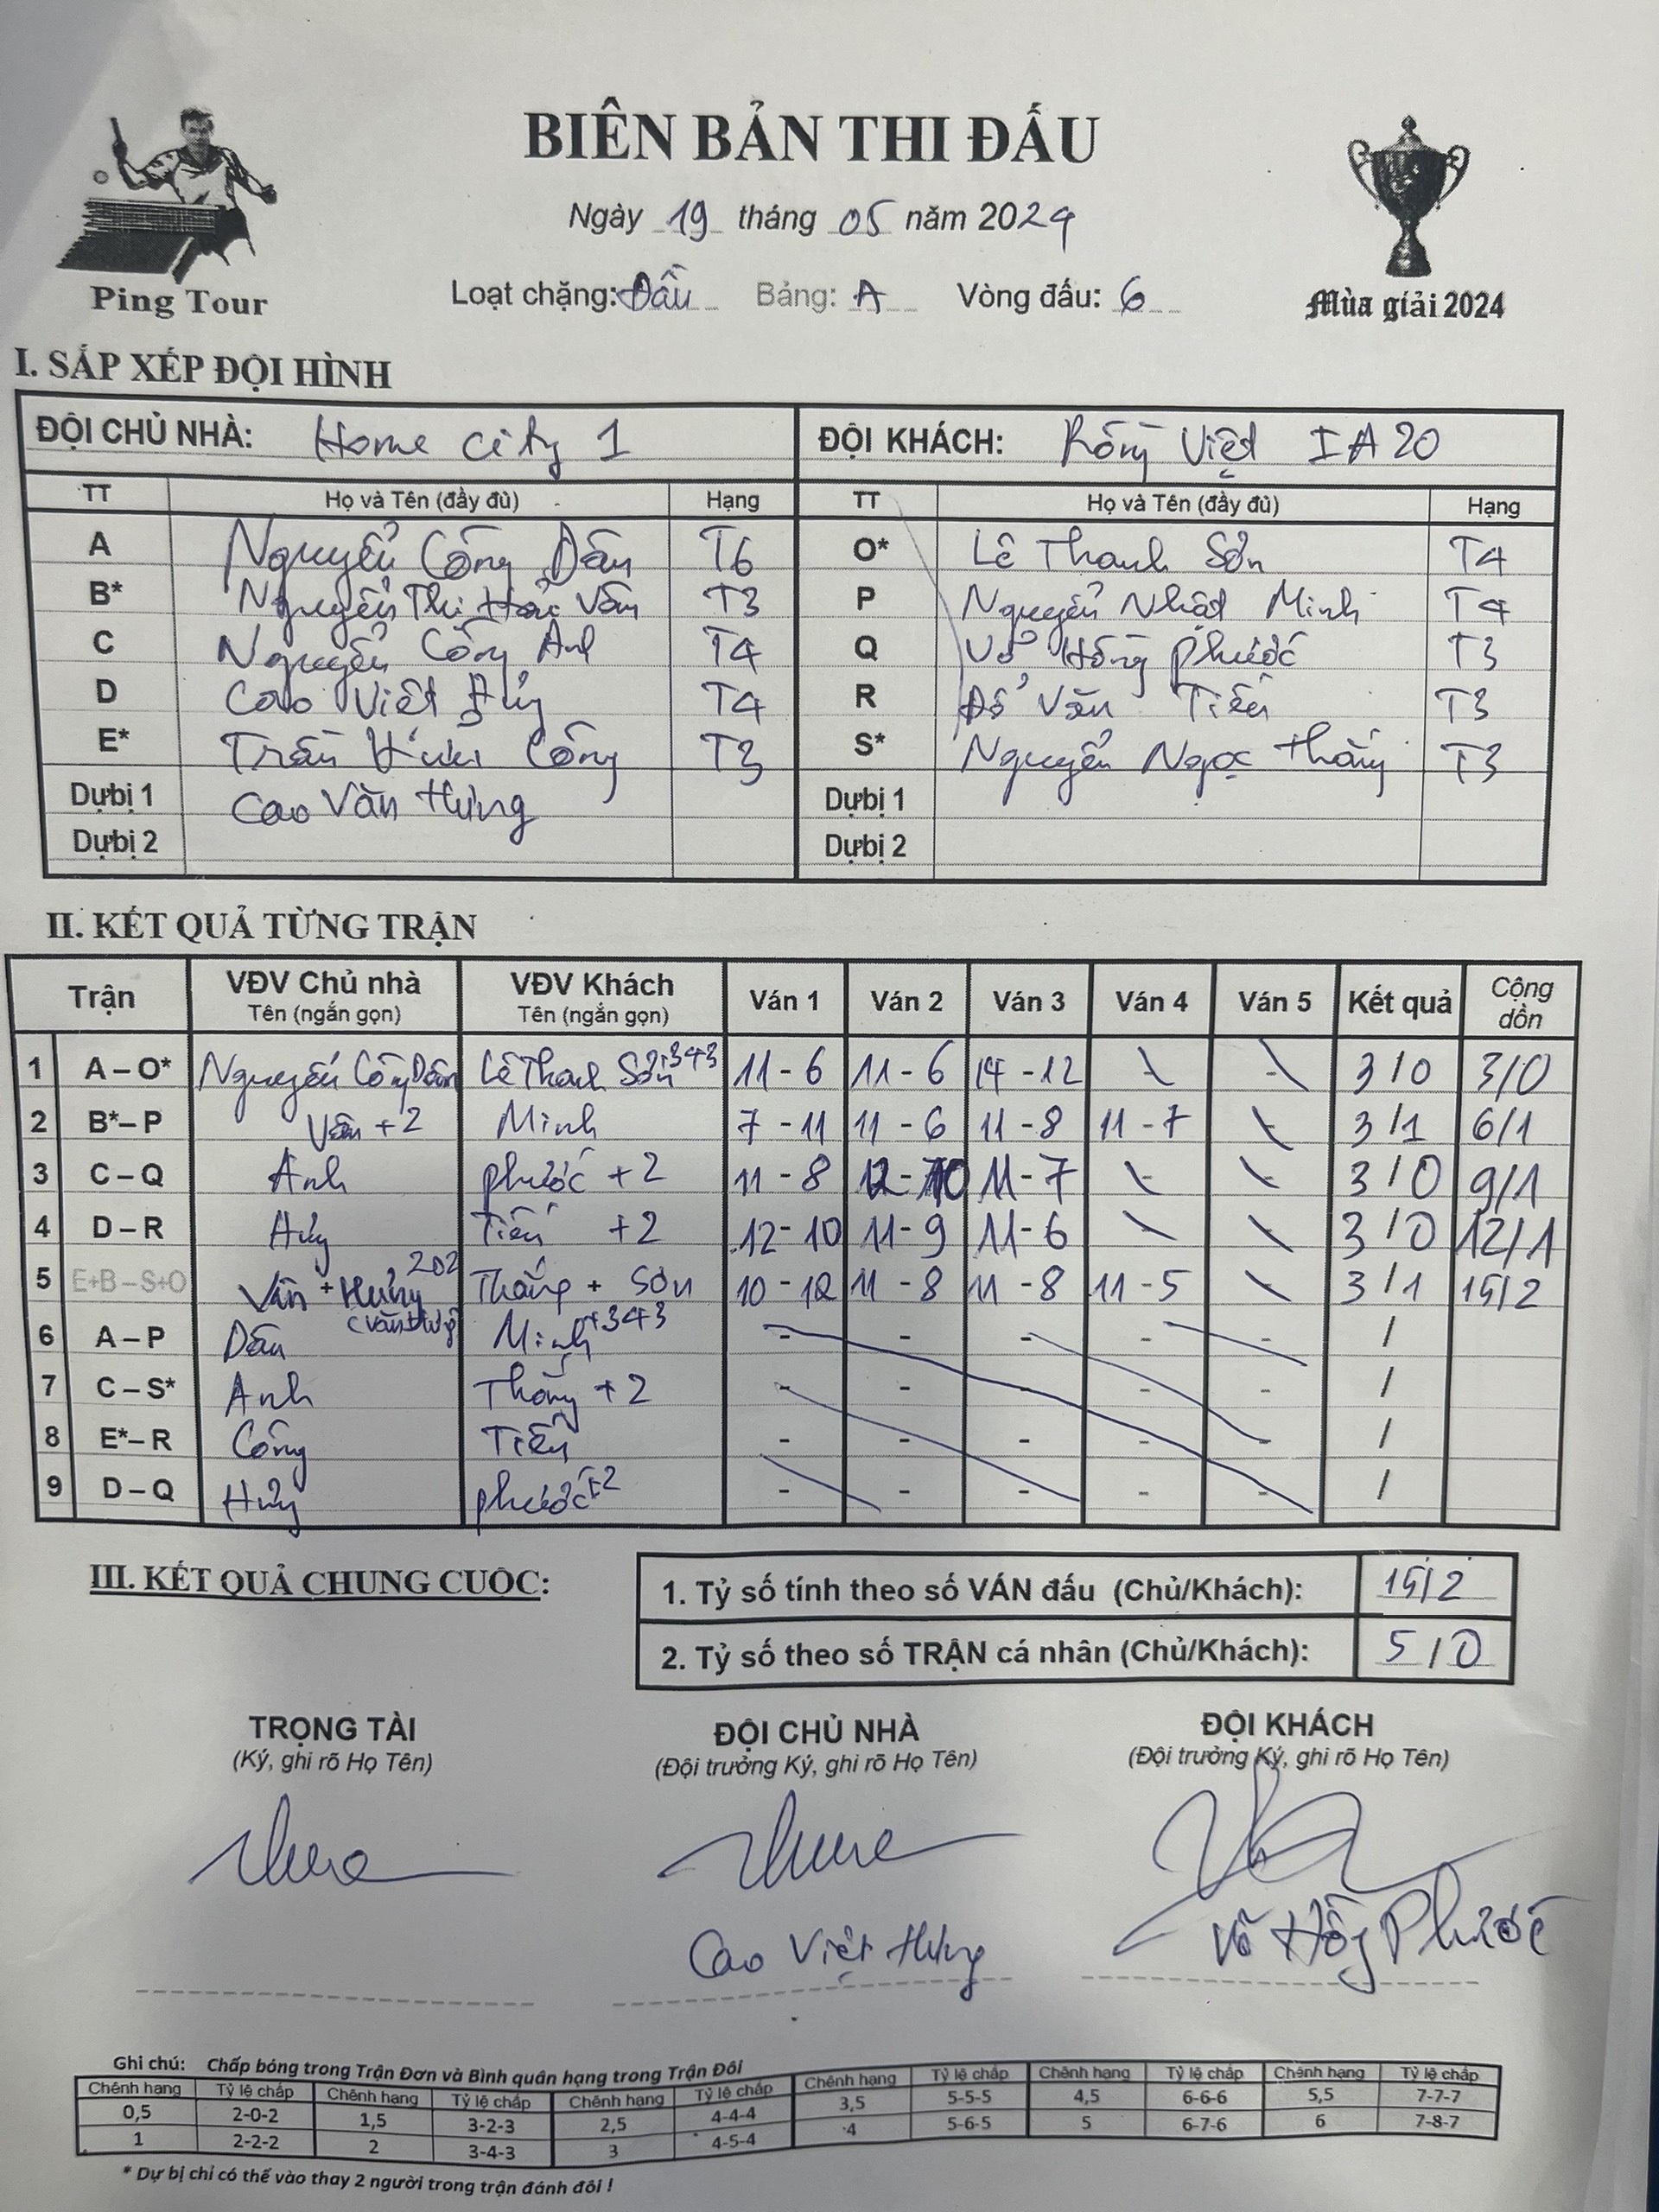 BIÊN BẢN THI ĐẤU
Ngày 19 tháng 05 năm 2024
Ping Tour
Loạt chặng: Đầu Bảng: A Vòng đấu: 6
Mùa giải 2024
I. SẮP XẾP ĐỘI HÌNH
ĐỘI CHỦ NHÀ: Home City 1 ĐỘI KHÁCH: Rồng Việt IA20
TT Họ và Tên (đầy đủ) Hạng TT Họ và Tên (đầy đủ) Hạng
A Nguyễn Công Dân T6 O* Lê Thanh Sơn T4
B* Nguyễn Thị Vân T3 P Nguyễn Nhật Minh T4
C Nguyễn Công Anh T4 Q Võ Hồng Phước T3
D Cao Việt T4 R Đỗ Văn Tiến T3
E* Trần Công T3 S* Nguyễn Ngọc Thắng T3
Dự bị 1 Cao Văn Hưng Dự bị 1
Dự bị 2 Dự bị 2
II. KẾT QUẢ TỪNG TRẬN
Trận VĐV Chủ nhà Tên (ngắn gọn) VĐV Khách Tên (ngắn gọn) Ván 1 Ván 2 Ván 3 Ván 4 Ván 5 Kết quả Cộng dồn
1 A – O* Nguyễn Công Dân Lê Thanh Sơn+343 11 - 6 11 - 6 14 - 12 \ - \ 3 / 0 3/0
2 B*– P Vân + 2 Minh 7 - 11 11 - 6 11 - 8 11 - 7 \ 3 / 1 6/1
3 C – Q Anh Phước + 2 11 - 8 12 - 10 11 - 7 \ \ 3 / 0 9/1
4 D – R Tiến + 2 12 - 10 11 - 9 11 - 6 \ \ 3 / 0 12/1
5 E+B – S+O Vân + Hưng 202 (Văn Hưng) Thắng + Sơn 10 - 12 11 - 8 11 - 8 11 - 5 \ 3 / 1 15/2
6 A – P Dân Minh+343 - - - - - /
7 C – S* Anh Thắng + 2 - - - - - /
8 E*– R Công Tiến - - - - - /
9 D – Q Phước+2 - - - - - /
III. KẾT QUẢ CHUNG CUỘC:
1. Tỷ số tính theo số VÁN đấu (Chủ/Khách): 15/2
2. Tỷ số theo số TRẬN cá nhân (Chủ/Khách): 5 / 0
TRỌNG TÀI ĐỘI CHỦ NHÀ ĐỘI KHÁCH
(Ký, ghi rõ Họ Tên) (Đội trưởng Ký, ghi rõ Họ Tên) (Đội trưởng Ký, ghi rõ Họ Tên)
Cao Việt Hưng Võ Hồng Phước
Ghi chú: Chấp bóng trong Trận Đơn và Bình quân hạng trong Trận Đôi
Chênh hạng Tỷ lệ chấp Chênh hạng Tỷ lệ chấp Chênh hạng Tỷ lệ chấp Chênh hạng Tỷ lệ chấp Chênh hạng Tỷ lệ chấp Chênh hạng Tỷ lệ chấp
0,5 2-0-2 1,5 3-2-3 2,5 4-4-4 3,5 5-5-5 4,5 6-6-6 5,5 7-7-7
1 2-2-2 2 3-4-3 3 4-5-4 4 5-6-5 5 6-7-6 6 7-8-7
* Dự bị chỉ có thể vào thay 2 người trong trận đánh đôi !